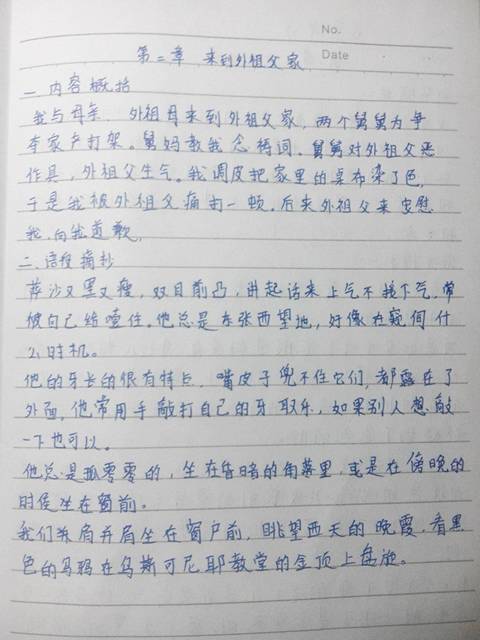 No.
Date
第二章 来到外祖父家
一 内容概括
我与母亲、外祖母来到外祖父家,两个舅舅为争
夺家产打架。舅妈教我念祷词。舅舅对外祖父恶
作具,外祖父生气。我调皮把家里的桌布染了色,
于是我被外祖父痛打一顿。后来外祖父来安慰
我,向我道歉。
二.语段摘抄
萨沙又黑又瘦,双目前凸,讲起话来上气不接下气,常
被自己给噎住。他总是东张西望地,好像在窥伺什
么时机。
他的牙长的很有特点,嘴皮子兜不住它们,都露在了
外面,他常用手敲打自己的牙取乐,如果别人想敲
一下也可以。
他总是孤零零的,坐在昏暗的角落里,或是在傍晚的
时侯坐在窗前。
我们并肩坐在窗户前,眺望西天的晚霞,看黑
色的乌鸦在乌斯可尼耶教堂的金顶上盘旋。